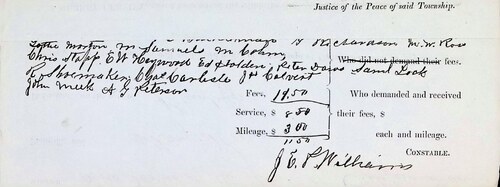 Justice of the Peace of said Township.
Richardson M. W. Ross
Lottie Morton M Samuels M Cohn
Chris Stapp E W Heywood Ed Golden, Peter Davis Saml Lock
Who did not demand their fees.
R Shoemaker, Carlisle Jas Calvert
John Meek A G Peterson
Fees, 19.50
Who demanded and received
Service, $ 8 50
their fees, $
Mileage, $ 3 00
each and mileage.
11 50
CONSTABLE.
J E P Williams